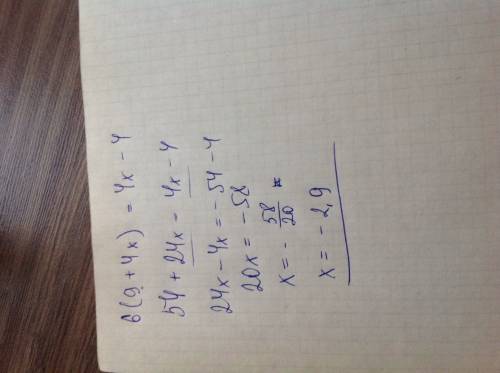 6(9+4x) = 4x - 4
54 + 24x = 4x - 4
24x - 4x = -54 - 4
20x = -58
x = - 58/20
x = -2,9